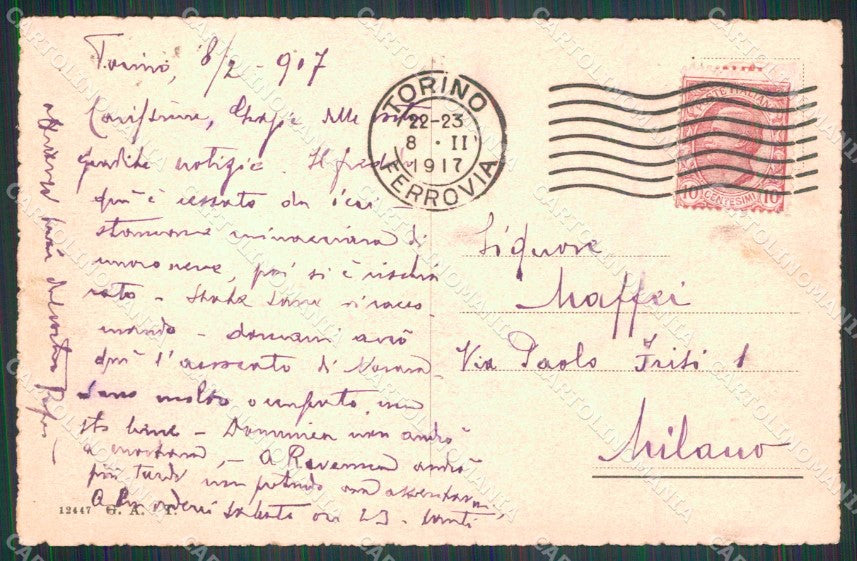 Torino, 8/2 - 907
Carissime, Grazie delle
notizie. Il freddo
qui è cessato da ieri
stamane minacciava di
nuova neve, poi si è rischia
rato -
domani avrò
qui l'avvocato di Novara
Sono molto occupato, ma
sto bene - Domenica non andrò
a - A Ravenna andrò
più tardi non potendo ora assentarmi,
A ben vederci sabato ore 23.
TORINO
22-23
8 · II
1917
FERROVIA
POSTE ITALIANE
10 CENTESIMI 10
Signore
Maffei
Via Paolo Frisi 1
Milano
12447 G. A. T.
CARTOLINOMANIA